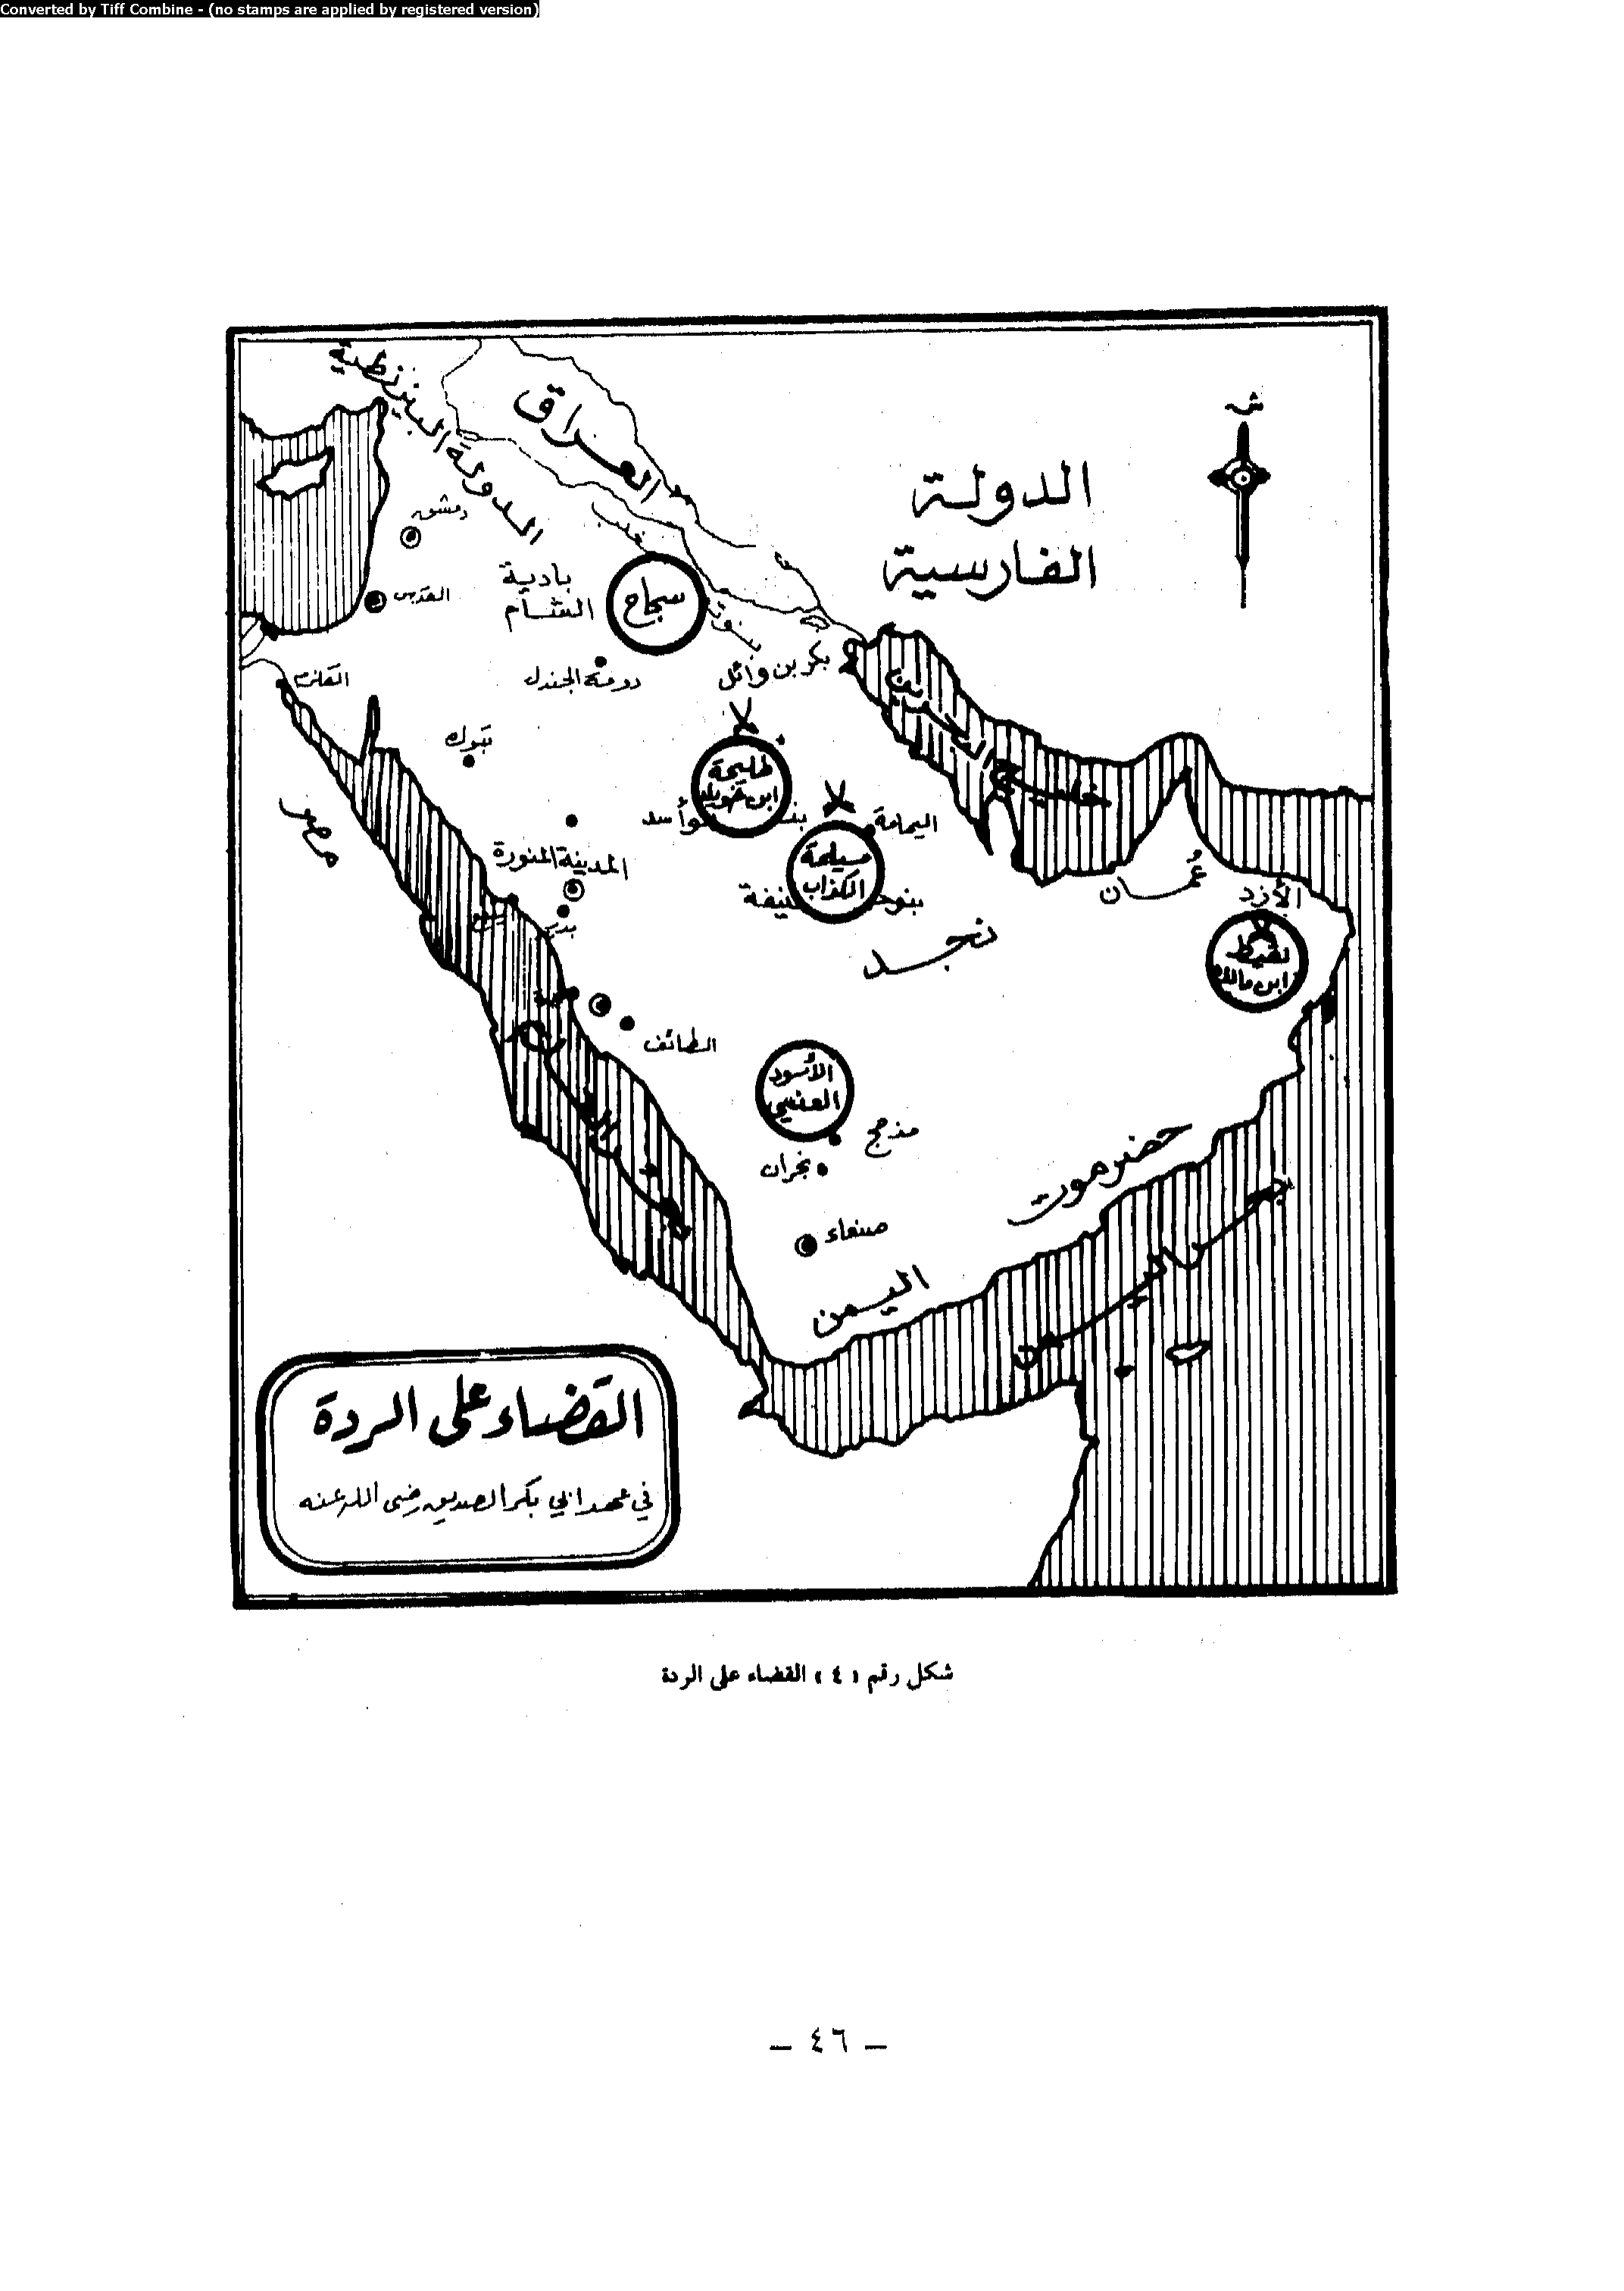 Converted by Tiff Combine - (no stamps are applied by registered version)
ش
الدولة البيزنطية
العراق
الدولة
الفارسية
دمشق
القدس
بادية
الشام
سجاح
دومة الجندل
بكر بن وائل
القلزم
تبوك
مصر
طليحة
ابن خويلد
بنوأسد
اليمامة
مسيلمة
الكذاب
بنوحنيفة
المدينة المنورة
بدر
نجد
عُمان
الأزد
لقيط
ابن مالك
الطائف
الأسود
العنسي
مذحج
نجران
صنعاء
حضرموت
اليمن
القضاء على الردة
في عهد ابي بكر الصديق رضى الله عنه
شكل رقم (٤) القضاء على الردة
– ٤٦ –